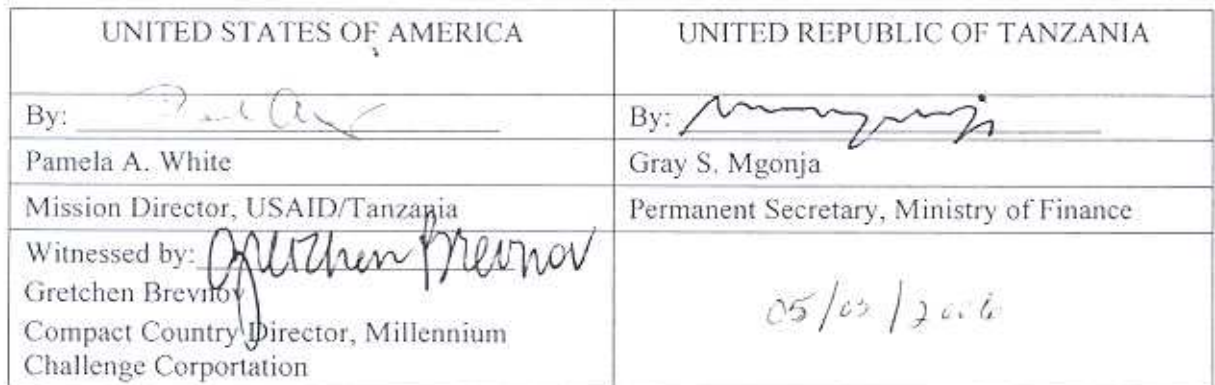 UNITED STATES OF AMERICA
UNITED REPUBLIC OF TANZANIA
By:
By:
Pamela A. White
Gray S. Mgonja
Mission Director, USAID/Tanzania
Permanent Secretary, Ministry of Finance
Witnessed by: Gretchen Brevnov
Gretchen Brevnov
Compact Country Director, Millennium
Challenge Corportation